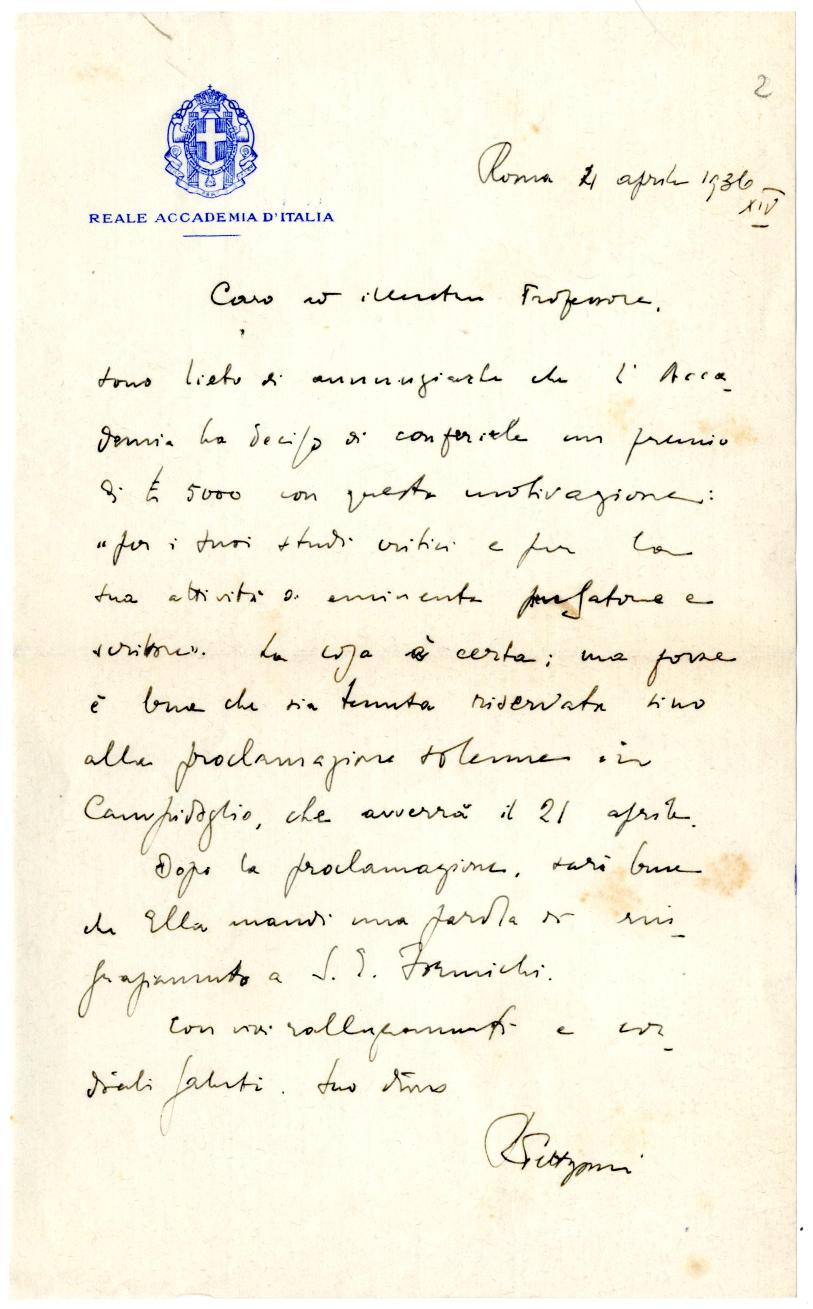 2
Roma 4 aprile 1936
XIV
REALE ACCADEMIA D'ITALIA
Caro ed illustre Professore,
sono lieto di annunziarle che l'Acca-
demia ha deciso di conferirle un premio
di £ 5000 con questa motivazione:
"per i suoi studi critici e per la
sua attività di eminente e
scrittore". La cosa è certa; ma forse
è bene che sia tenuta riservata sino
alla proclamazione solenne in
Campidoglio, che avverrà il 21 aprile.
Dopo la proclamazione, sarà bene
che Ella mandi una parola di rin-
graziamento a S. E. Formichi.
Con vivi rallegramenti e cor-
diali saluti. Suo
R Pettazzoni